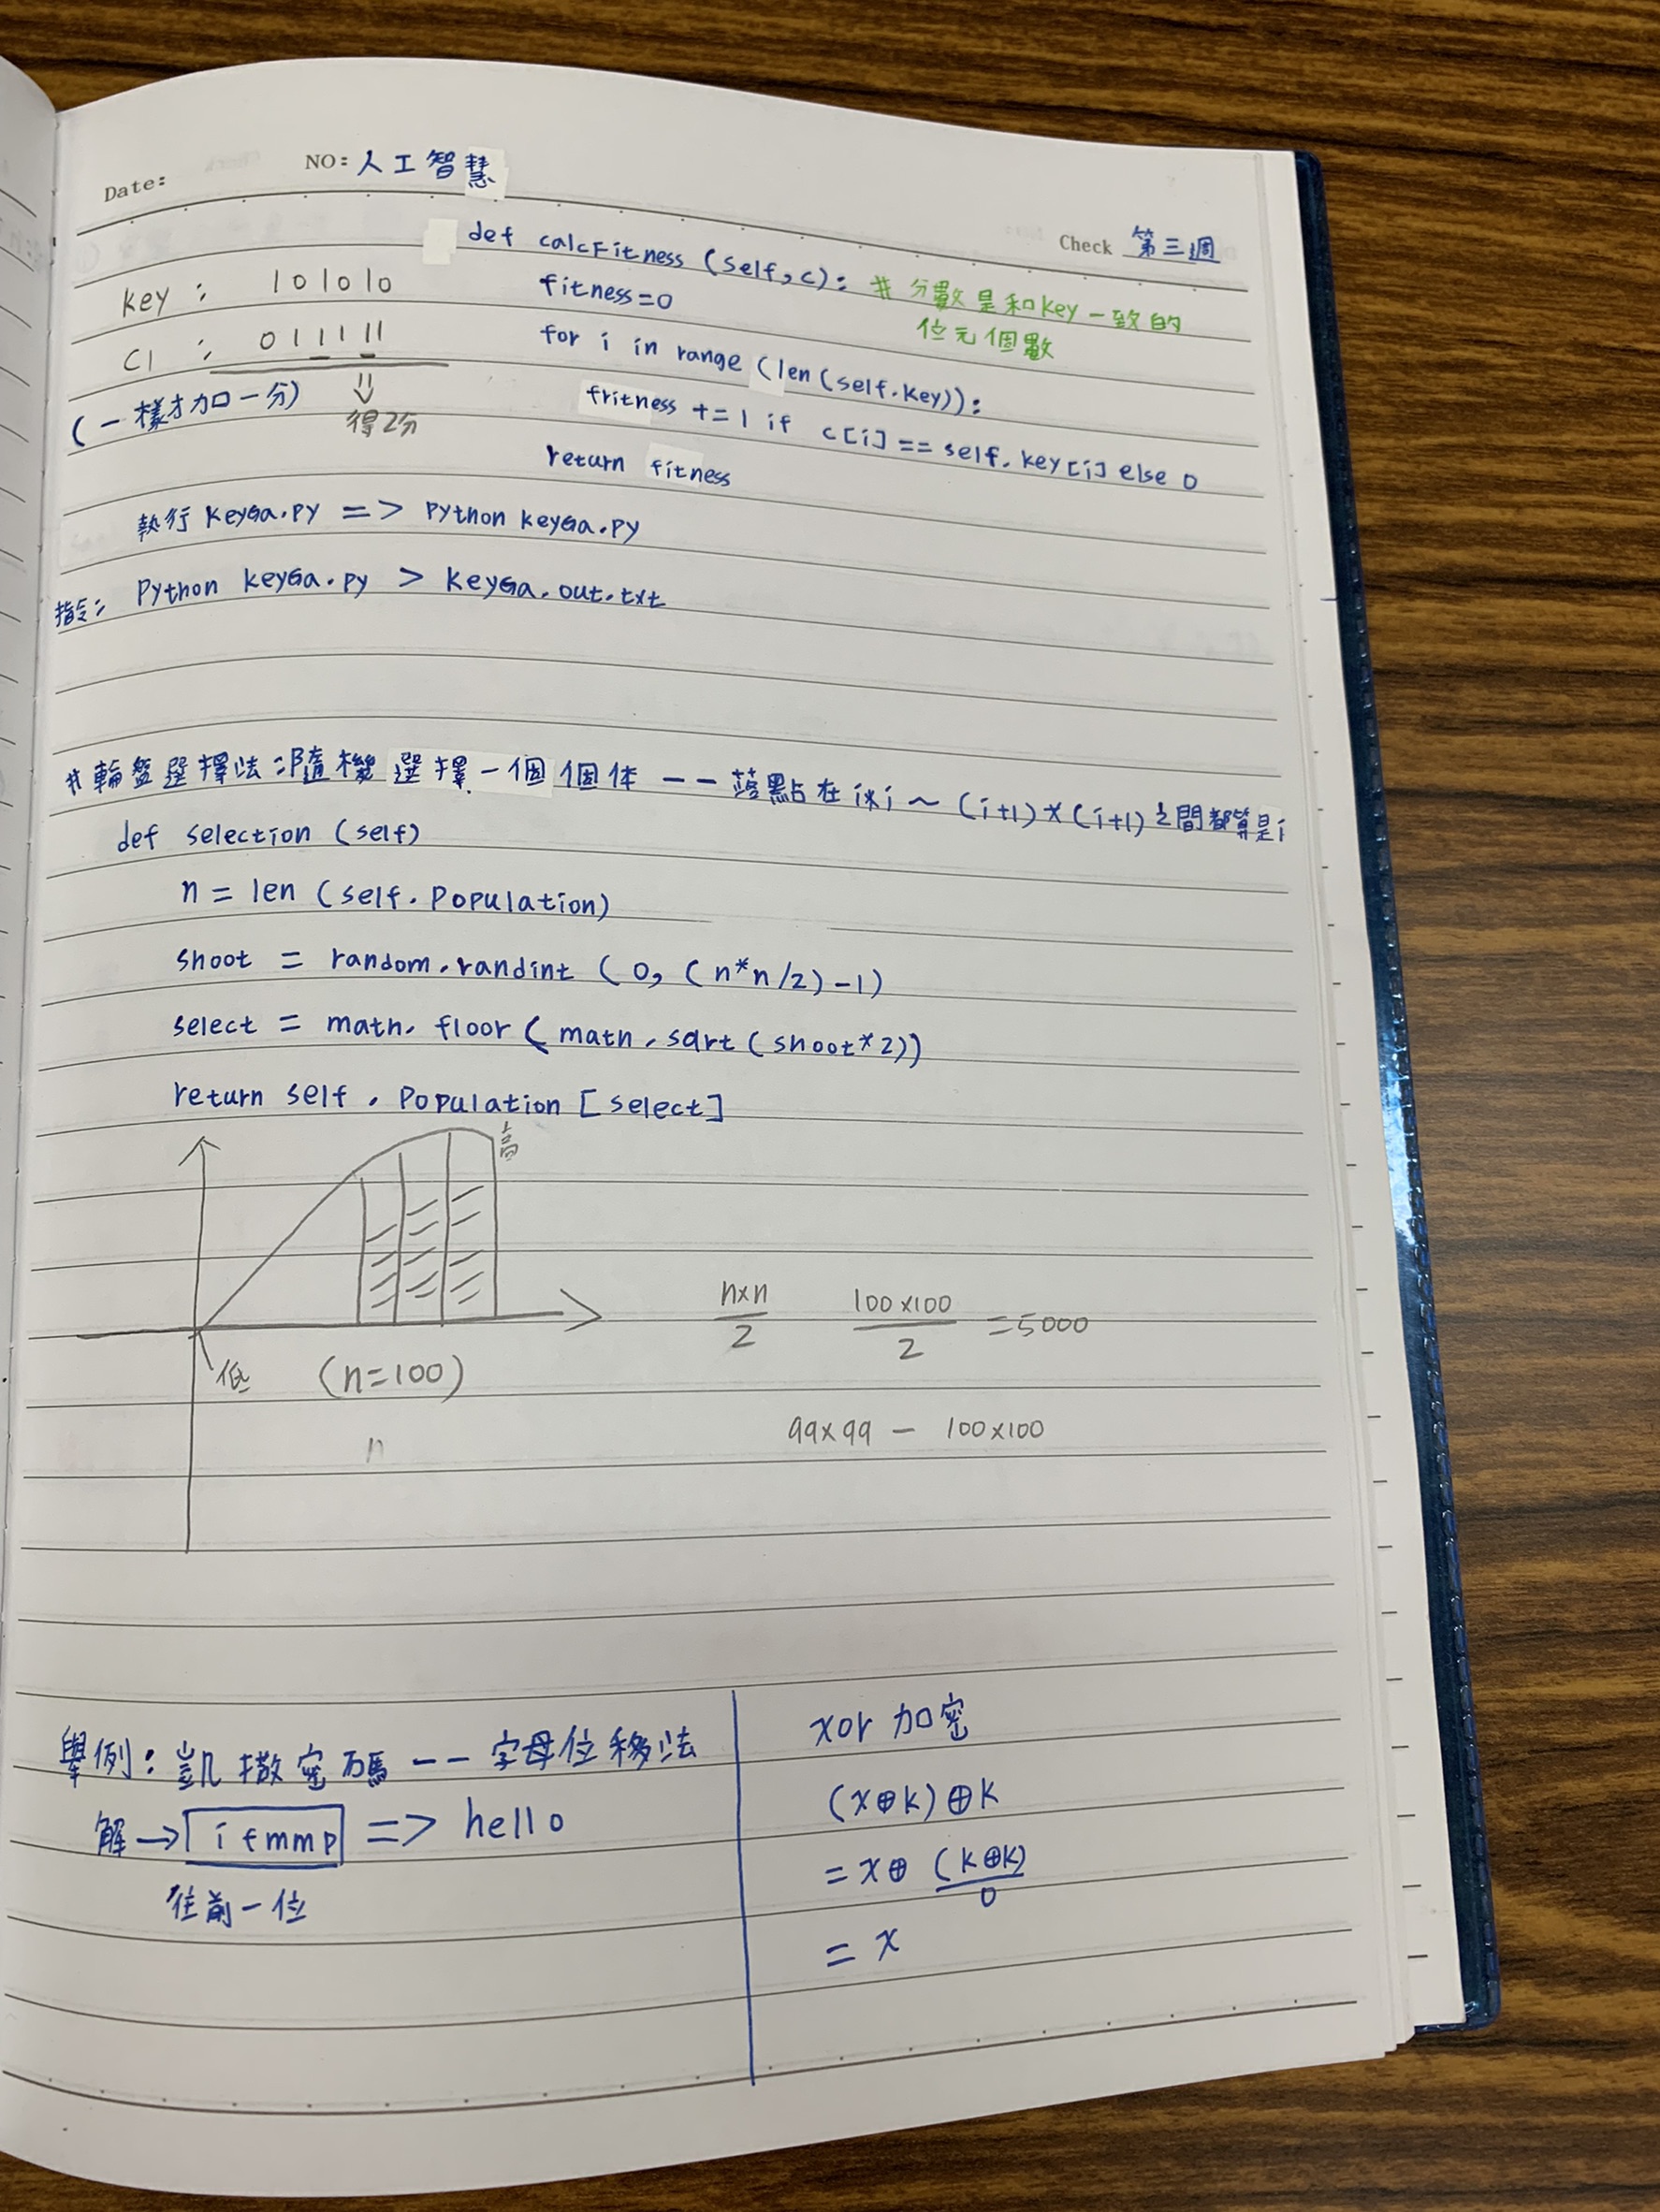 Date:
NO: 人工智慧
Check 第三週
key : 101010
C1 : 011111
(一樣才加一分)
得2分
def calcFitness (self, c): # 分數是和key一致的
位元個數
fitness=0
for i in range (len(self.key)):
fritness += 1 if c[i] == self.key[i] else 0
return fitness
執行 KeyGa.py => Python keyGa.py
指令: Python keyGa.py > KeyGa.out.txt
# 輪盤選擇法:隨機選擇一個個体 -- 落點在 i*i ~ (i+1)*(i+1) 之間都算是i
def selection (self)
n = len (self.population)
shoot = random.randint (0, (n*n/2)-1)
select = math.floor (math.sqrt (shoot*2))
return self.population [select]
高
低
(n=100)
n
n×n/2
100×100/2 =5000
99×99 - 100×100
舉例: 凱撒密碼 -- 字母位移法
解→ ifmmp => hello
往前一位
xor 加密
(x⊕k)⊕k
= x⊕(k⊕k)
0
= x